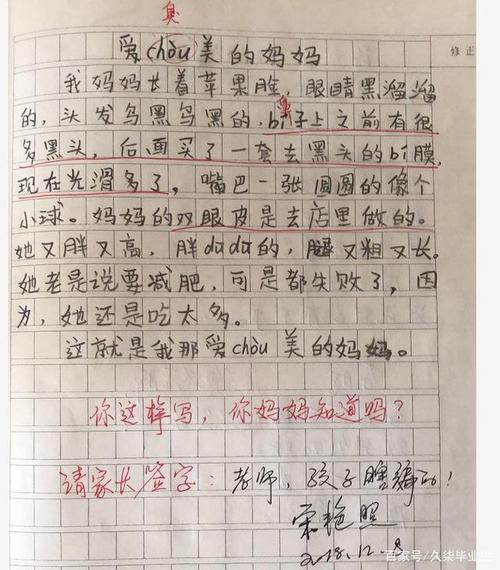 臭
修正
爱chòu美的妈妈
我妈妈长着苹果脸，眼睛黑溜溜
的，头发乌黑乌黑的，bí子上之前有很
鼻
多黑头，后面买了一套去黑头的bí膜，
现在光滑多了，嘴巴一张圆圆的像个
小球。妈妈的双眼皮是去店里做的。
她又胖又高，胖dūdū的，腿又粗又长。
她老是说要减肥，可是都失败了，因
为，她还是吃太多。
这就是我那爱chòu美的妈妈。
你这样写，你妈妈知道吗？
请家长签字：老师，孩子瞎编的！
宋艳照
2018.12.8
百家号/久柒毕业生